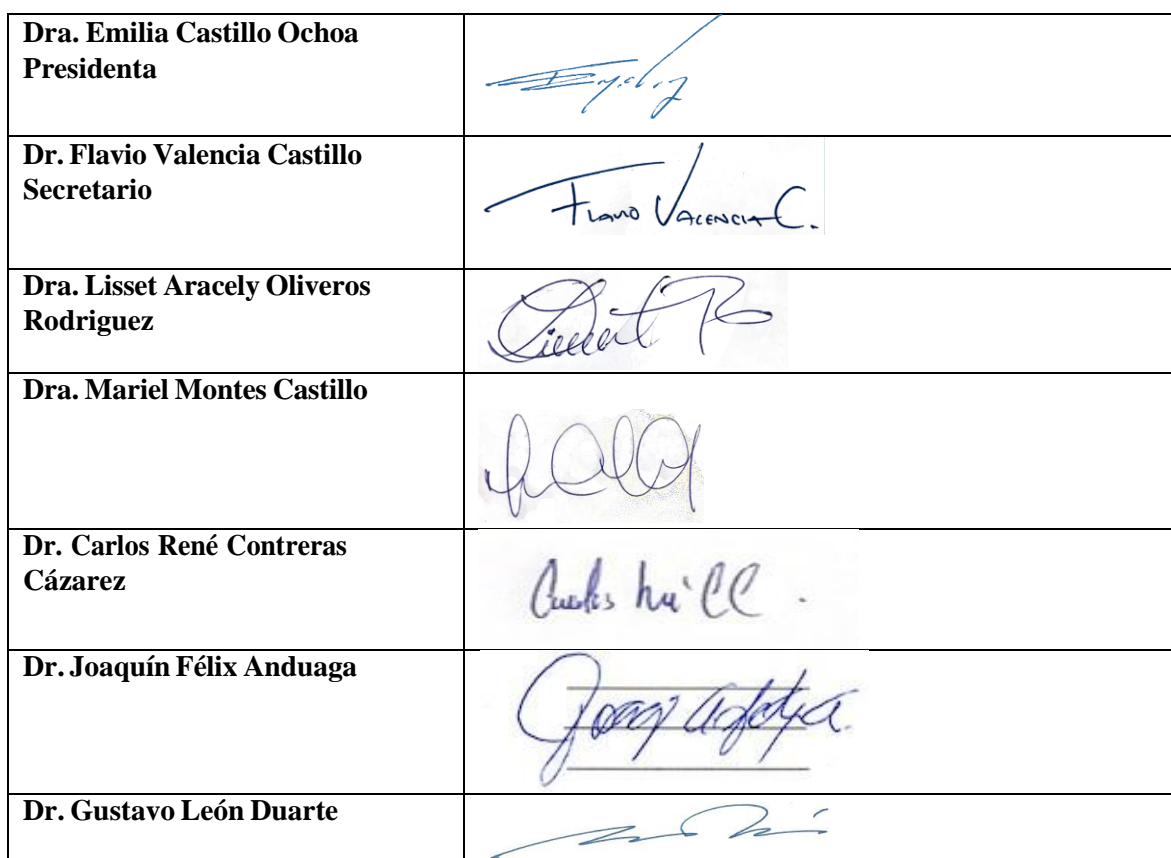 Dra. Emilia Castillo Ochoa
Presidenta
Dr. Flavio Valencia Castillo
Secretario
Flavio Valencia C.
Dra. Lisset Aracely Oliveros
Rodriguez
Dra. Mariel Montes Castillo
Dr. Carlos René Contreras
Cázarez
Dr. Joaquín Félix Anduaga
Dr. Gustavo León Duarte